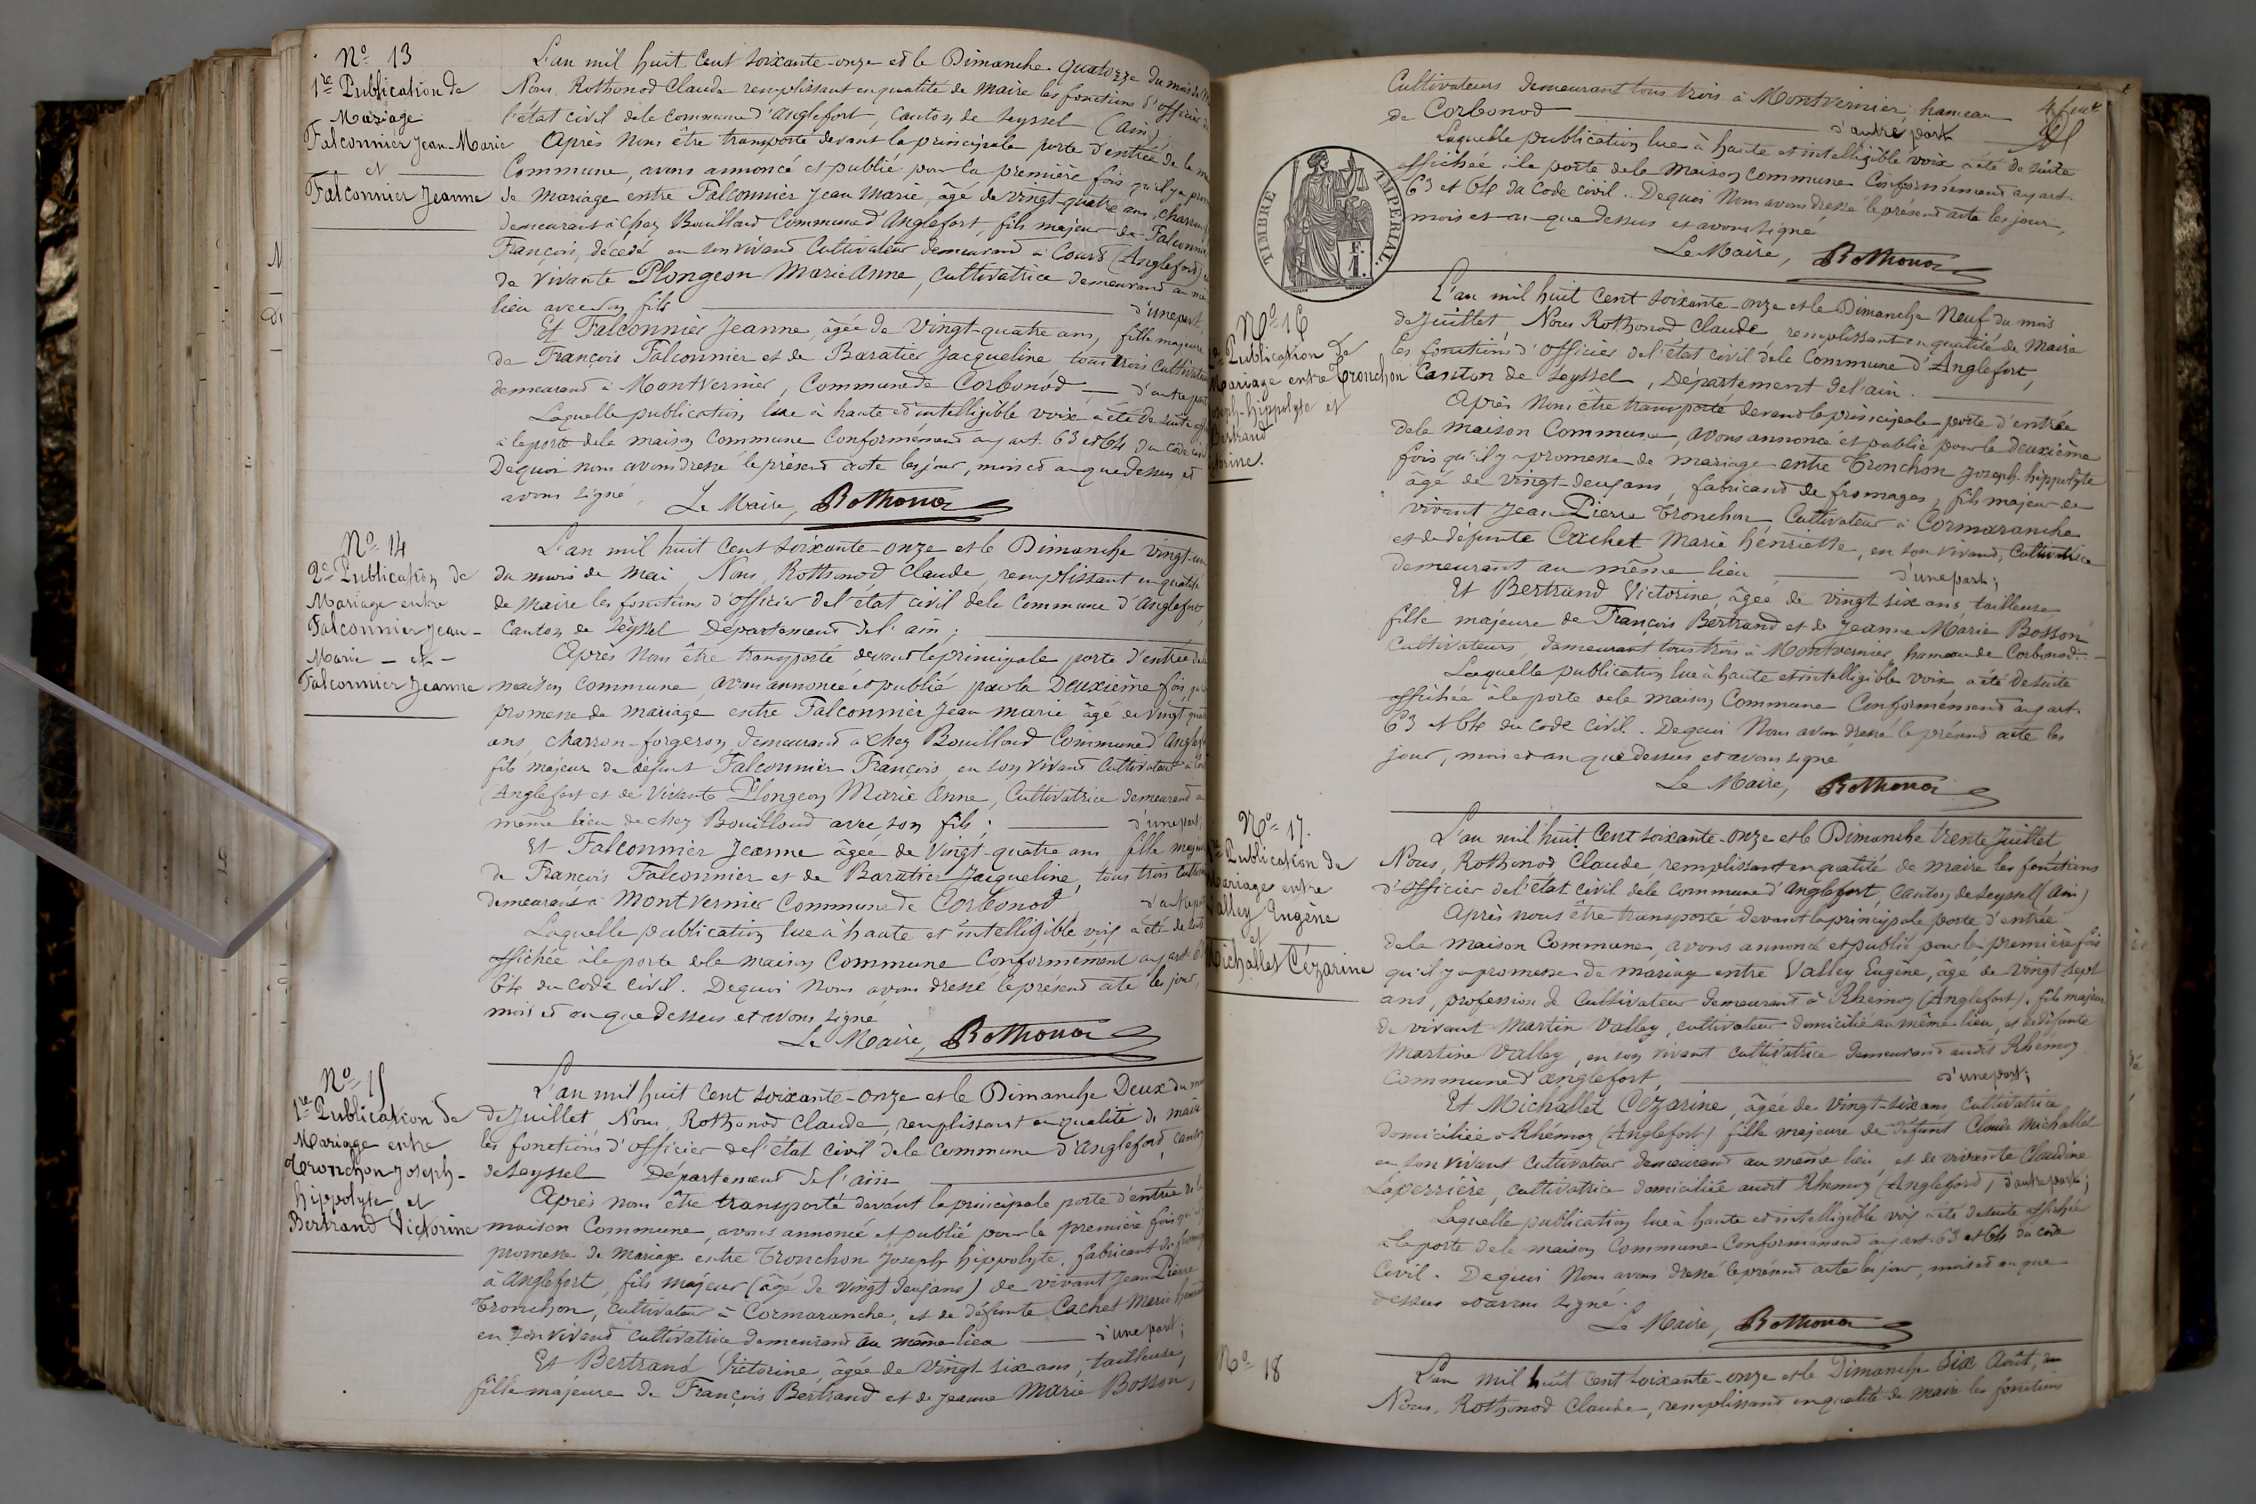 N° 13
1re Publication de
Mariage
Falconnier Jean-Marie
et
Falconnier Jeanne
L'an mil huit cent soixante-onze et le Dimanche quatorze du mois de
Nous, Rothonod Claude remplissant en qualité de Maire les fonctions d'officier de
l'état civil de la commune d'Anglefort, canton de Seyssel (ain)
Après nous être transporté devant la principale porte d'entrée de la
Commune, avons annoncé et publié pour la première fois qu'il y a
de mariage entre Falconnier Jean Marie, âgé de vingt-quatre ans, charron
demeurant à chez Bouilloud Commune d'Anglefort, fils majeur de Falconnier
François, décédé en son vivant Cultivateur demeurant à Court (Anglefort)
de vivante Plongeon Marie Anne, Cultivatrice demeurant au
lieu avec son fils d'une part,
Et Falconnier Jeanne, âgée de vingt-quatre ans, fille majeure
de François Falconnier et de Baratier Jacqueline, tous trois cultivateurs
demeurant à Montvernier, Commune de Corbonod, d'autre part
Laquelle publication lue à haute et intelligible voix a été de suite
à la porte de la maison commune Conformément aux art. 63 et 64 du code civil
Dequoi nous avons dressé le présent acte les jour, mois et an que dessus et
avons signé,
Le Maire, Rothonod
N° 14
2e Publication de
Mariage entre
Falconnier Jean-
Marie - et -
Falconnier Jeanne
L'an mil huit cent soixante-onze et le Dimanche vingt-un
du mois de Mai, Nous, Rothonod Claude, remplissant en qualité
de Maire les fonctions d'officier de l'état civil de la Commune d'Anglefort,
Canton de Seyssel Département de l'ain ;
Après Nous être transporté devant la principale porte d'entrée de la
maison commune, avons annoncé et publié pour la Deuxième fois
promesse de mariage entre Falconnier Jean Marie âgé de vingt quatre
ans, charron-forgeron demeurant à chez Bouilloud Commune d'Anglefort
fils majeur de défunt Falconnier François, en son vivant Cultivateur à
(Anglefort et de vivante Plongeon Marie Anne, Cultivatrice demeurant au
même lieu de chez Bouilloud avec son fils ; d'une part,
Et Falconnier Jeanne âgée de vingt-quatre ans fille majeure
de François Falconnier et de Baratier Jacqueline, tous trois
demeurant à Montvernier Commune de Corbonod, d'autre part
Laquelle publication lue à haute et intelligible voix a été de suite
affichée à la porte de la maison Commune Conformément aux art.
64 du code civil. Dequoi Nous avons dressé le présent acte les jour,
mois et an que dessus et avons signé
Le Maire, Rothonod
N° 15
1re Publication de
Mariage entre
Tronchon Joseph-
hippolyte et
Bertrand Victorine
L'an mil huit cent soixante-onze et le Dimanche Deux du
de Juillet, Nous, Rothonod Claude, remplissant en qualité de maire
les fonctions d'officier de l'état civil de la commune d'Anglefort, canton
de Seyssel Département de l'ain
Après nous être transporté devant la principale porte d'entrée de la
maison commune, avons annoncé et publié pour la première fois
promesse de mariage entre Tronchon Joseph hippolyte, fabricant de
à anglefort, fils majeur (âgé de vingt deux ans) de vivant Jean Pierre
Tronchon, cultivateur à Cormaranche, et de défunte Cachet Marie
en son vivant cultivatrice demeurant au même lieu d'une part ;
Et Bertrand Victorine, âgée de vingt-six ans, tailleuse,
fille majeure de François Bertrand et de Jeanne Marie Bosson,
Cultivateurs demeurant tous trois à Montvernier, hameau
de Corbonod d'autre part
Laquelle publication lue à haute et intelligible voix a été de suite
affichée à la porte de la maison commune Conformément aux art.
63 et 64 du Code civil. Dequoi Nous avons dressé le présent acte les jour,
mois et an que dessus et avons signé
Le Maire, Rothonod
TIMBRE IMPERIAL.
F.
1.
N° 16
Publication de
Mariage entre Tronchon
hippolyte et
Bertrand
L'an mil huit cent soixante-onze et le Dimanche Neuf du mois
de Juillet, Nous Rothonod Claude remplissant en qualité de Maire
les fonctions d'officier de l'état civil de la Commune d'Anglefort,
Canton de Seyssel, Département de l'ain.
Après Nous être transporté devant la principale porte d'entrée
de la maison Commune, avons annoncé et publié pour la Deuxième
fois qu'il y a promesse de mariage entre Tronchon Joseph hippolyte
âgé de vingt-deux ans, fabricant de fromages, fils majeur de
vivant Jean Pierre Tronchon Cultivateur à Cormaranche
et de défunte Cachet Marie henriette, en son vivant, Cultivatrice
demeurant au même lieu, d'une part ;
Et Bertrand Victorine, âgée de vingt six ans, tailleuse
fille majeure de François Bertrand et de Jeanne Marie Bosson
Cultivateurs, demeurant tous trois à Montvernier, hameau de Corbonod
Laquelle publication lue à haute et intelligible voix a été de suite
affichée à la porte de la maison Commune Conformément aux art.
63 et 64 du code civil. Dequoi Nous avons dressé le présent acte les
jour, mois et an que dessus et avons signé
Le Maire, Rothonod
N° 17.
Publication de
Mariage entre
Valley Eugène
et
Michallet Cézarine
L'an mil huit cent soixante-onze et le Dimanche trente Juillet
Nous, Rothonod Claude, remplissant en qualité de Maire les fonctions
d'officier de l'état civil de la commune d'Anglefort, Canton de Seyssel (ain)
Après nous être transporté devant la principale porte d'entrée
de la maison Commune, avons annoncé et publié pour la première fois
qu'il y a promesse de mariage entre Valley Eugène, âgé de vingt-sept
ans, profession de Cultivateur demeurant à Rhémoz (Anglefort), fils majeur
de vivant Martin Valley, cultivateur domicilié au même lieu, et de défunte
Martine Valley, en son vivant cultivatrice demeurant audit Rhémoz
Commune d'anglefort, d'une part ;
Et Michallet Cézarine, âgée de vingt-six ans, cultivatrice
domiciliée à Rhémoz (Anglefort) fille majeure de défunt Claude Michallet
en son vivant cultivateur demeurant au même lieu, et de vivante Claudine
Laperrière, cultivatrice domiciliée audit Rhémoz (Anglefort) d'autre part ;
Laquelle publication lue à haute et intelligible voix a été de suite affichée
à la porte de la maison Commune Conformément aux art. 63 et 64 du code
Civil. Dequoi Nous avons dressé le présent acte les jour, mois et an que
dessus et avons signé.
Le Maire, Rothonod
N° 18
L'an mil huit cent soixante-onze et le Dimanche Six Août,
Nous, Rothonod Claude, remplissant en qualité de Maire les fonctions